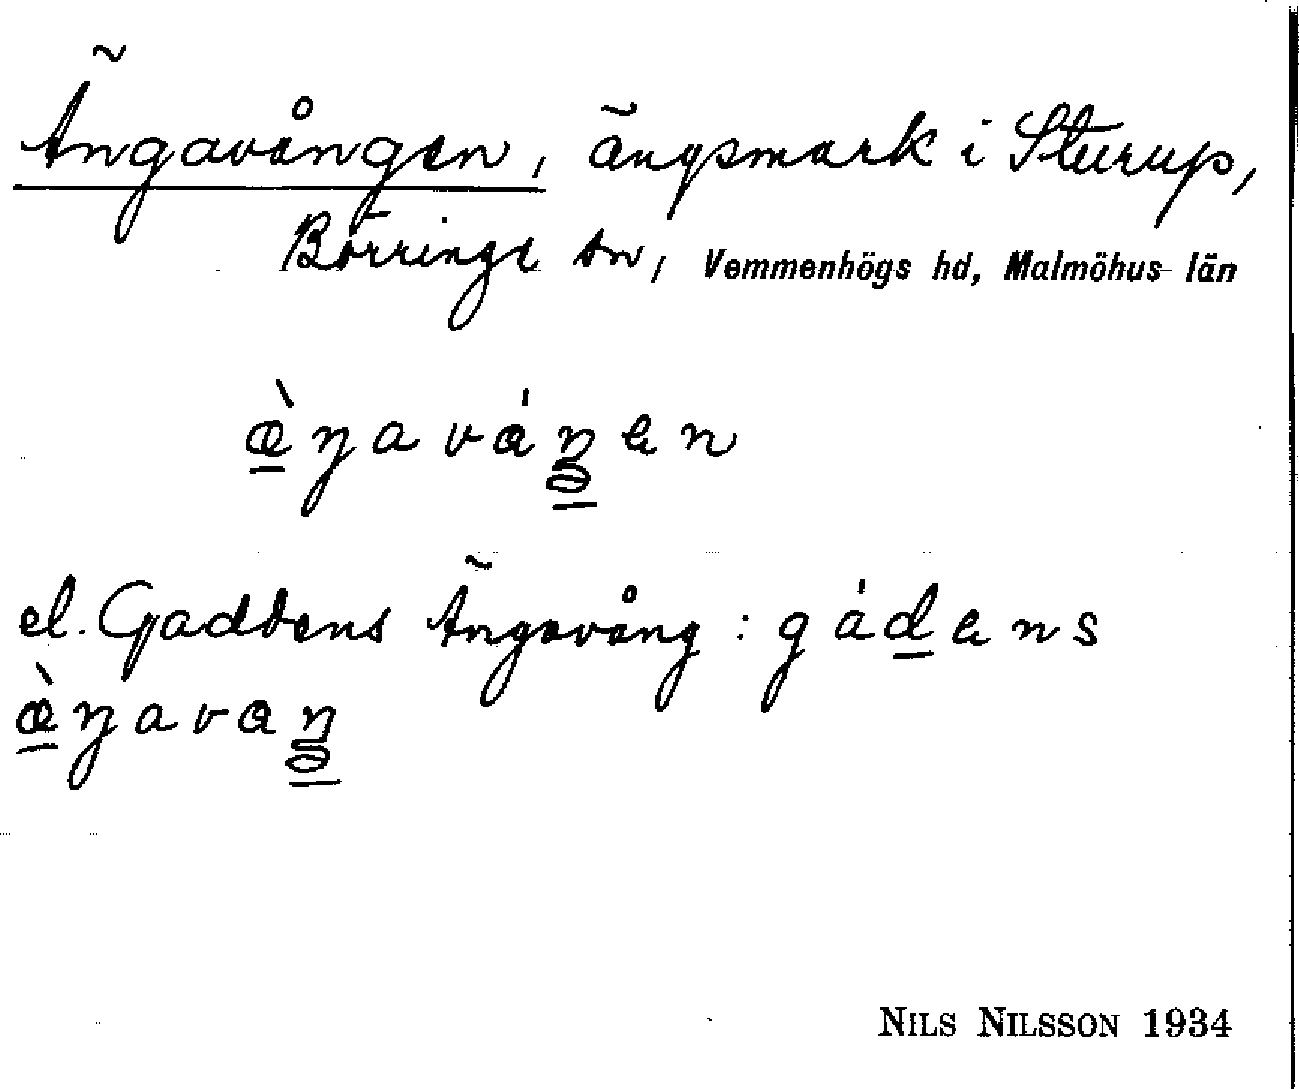 Ängavången, ängsmark i Sturup,
Börringe sn, Vemmenhögs hd, Malmöhus län
æ̀ŋaváŋen
el. Gaddens Ängavång: gádens
æ̀ŋavaŋ
NILS NILSSON 1934